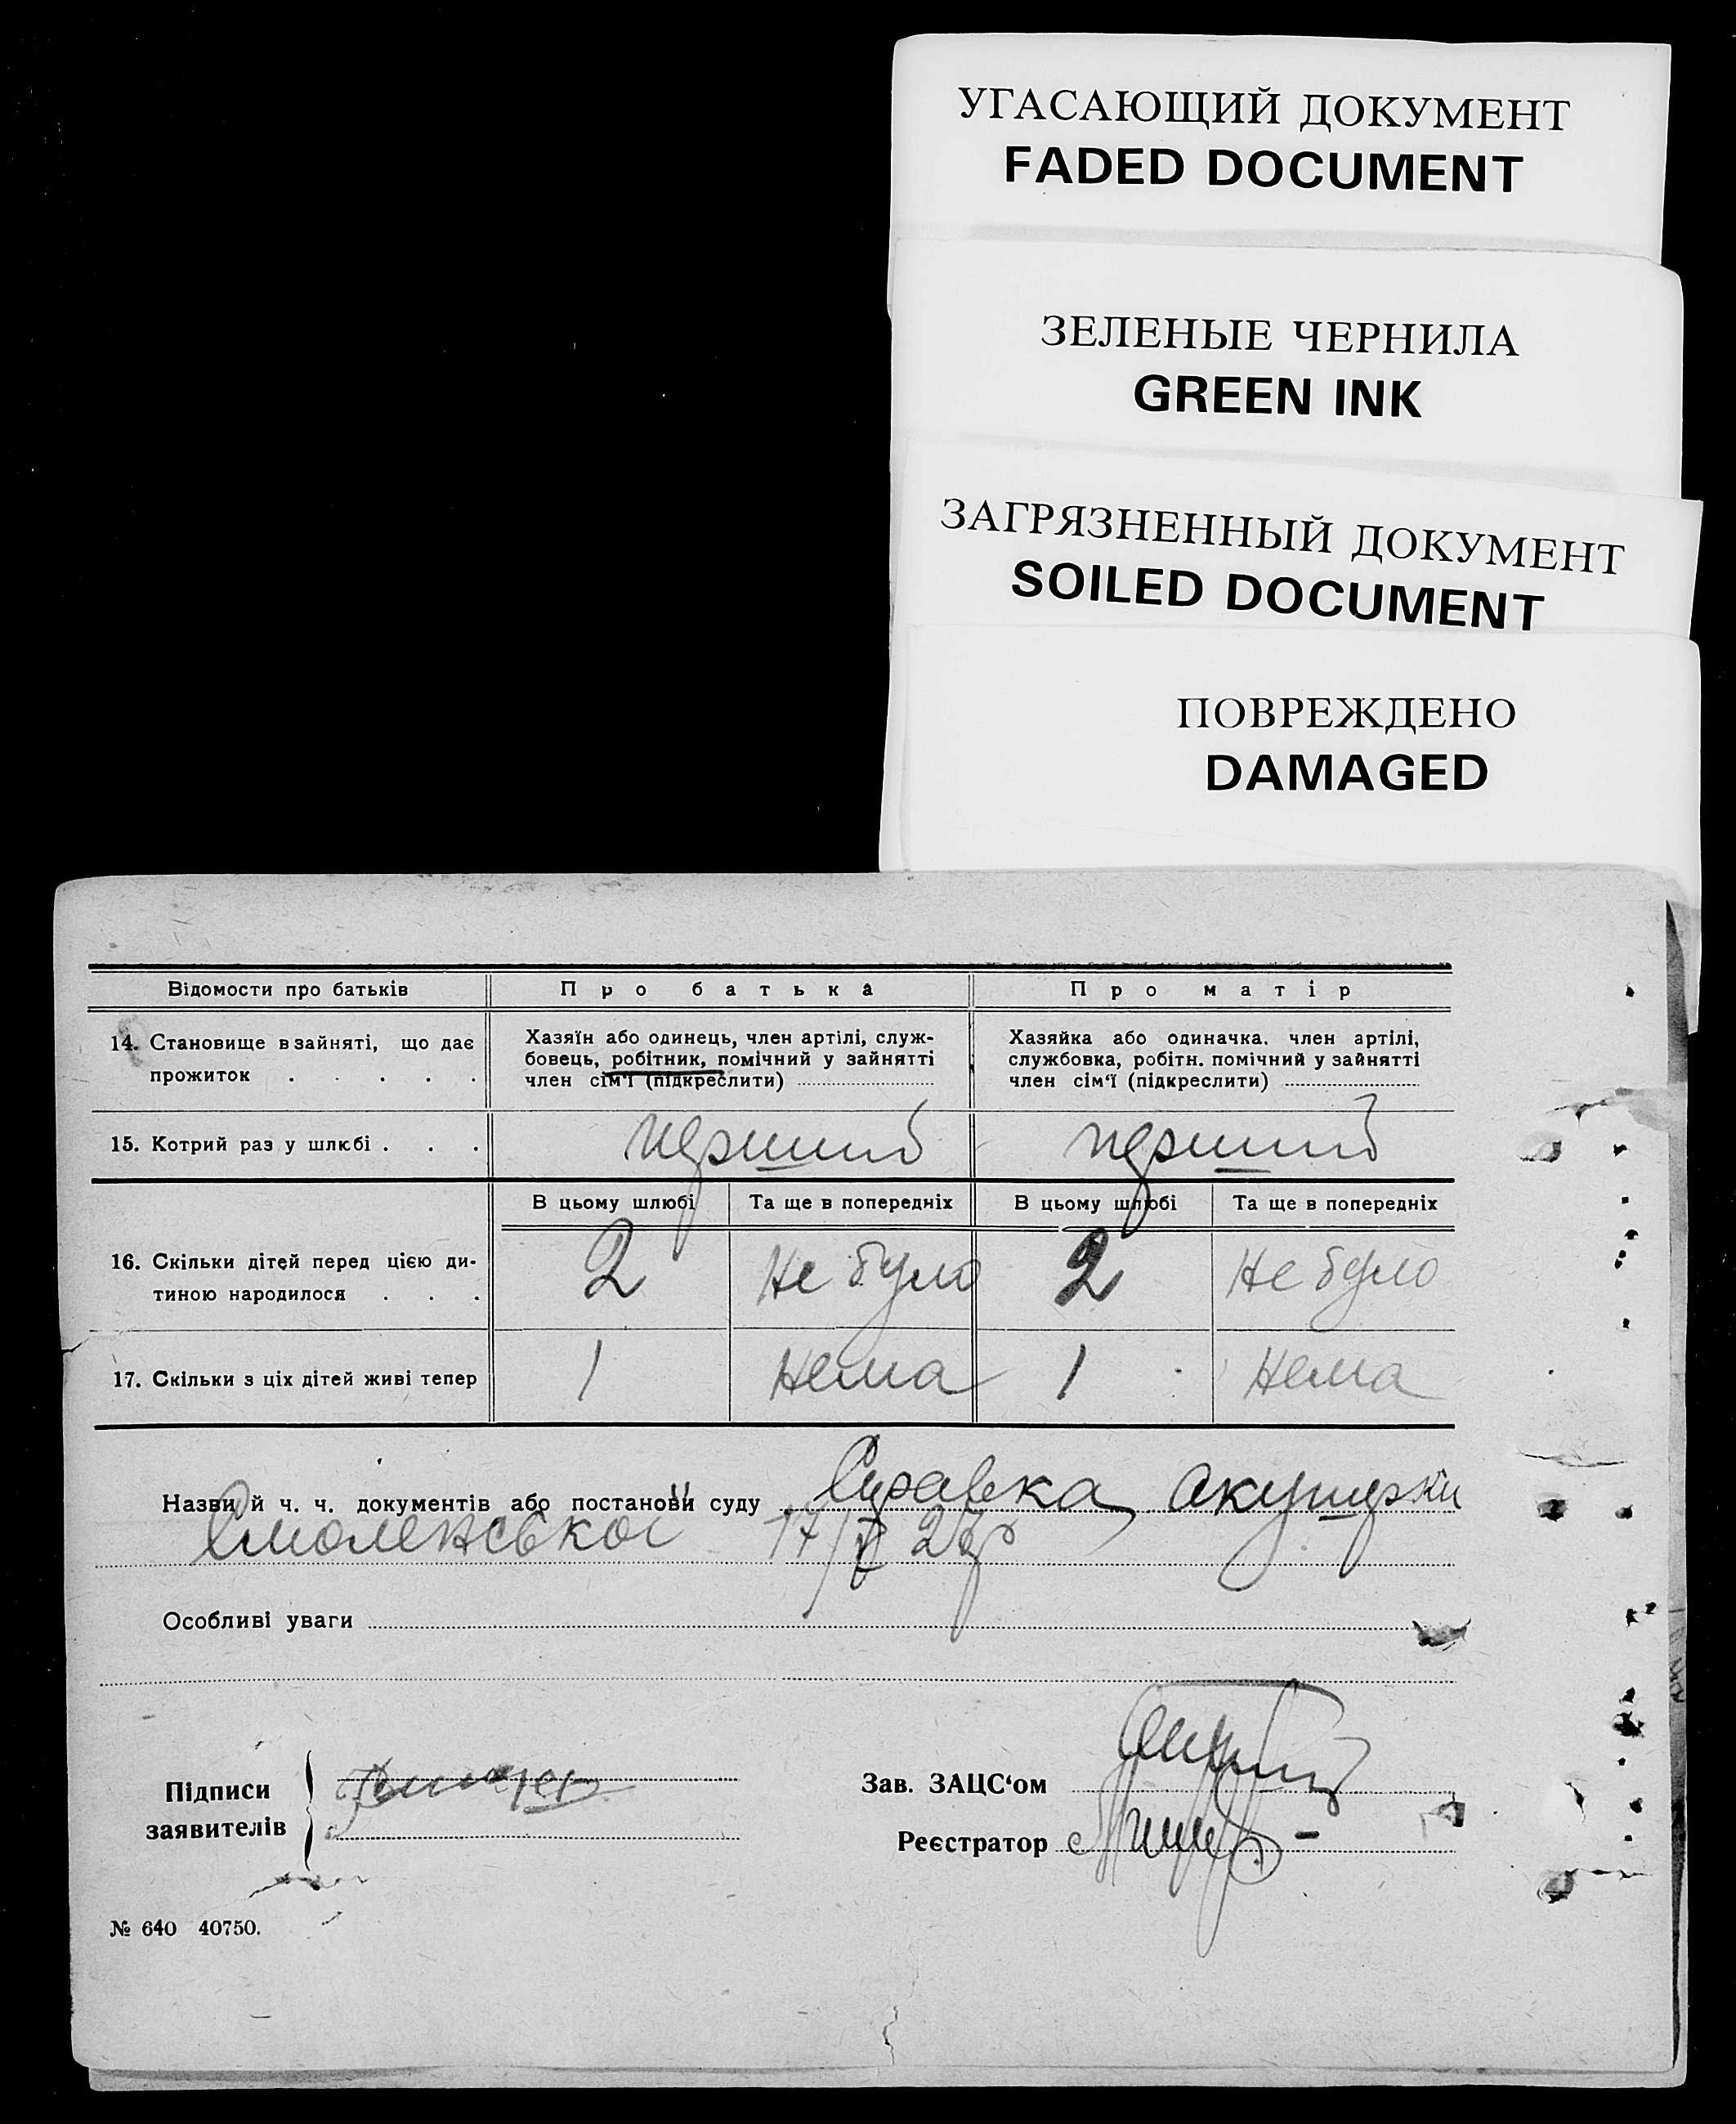 УГАСАЮЩИЙ ДОКУМЕНТ
FADED DOCUMENT
ЗЕЛЕНЫЕ ЧЕРНИЛА
GREEN INK
ЗАГРЯЗНЕННЫЙ ДОКУМЕНТ
SOILED DOCUMENT
ПОВРЕЖДЕНО
DAMAGED
Відомости про батьків
Про батька
Про матір
14. Становище в зайняті, що дає
прожиток . . . . .
Хазяїн або одинець, член артілі, служ-
бовець, робітник, помічний у зайнятті
член сім'ї (підкреслити)
Хазяйка або одиначка. член артілі,
службовка, робітн. помічний у зайнятті
член сім'ї (підкреслити)
15. Котрий раз у шлюбі . . .
перший
перший
В цьому шлюбі
Та ще в попередніх
В цьому шлюбі
Та ще в попередніх
16. Скільки дітей перед цією ди-
тиною народилося . . .
2
Не було
2
Не було
17. Скільки з ціх дітей живі тепер
1
Нема
1
Нема
Назви й ч. ч. документів або постанови суду Справка, акушерки
Смоленської 17/V
Особливі уваги
Підписи
заявителів
Зав. ЗАЦС'ом
Реєстратор
№ 640 40750.